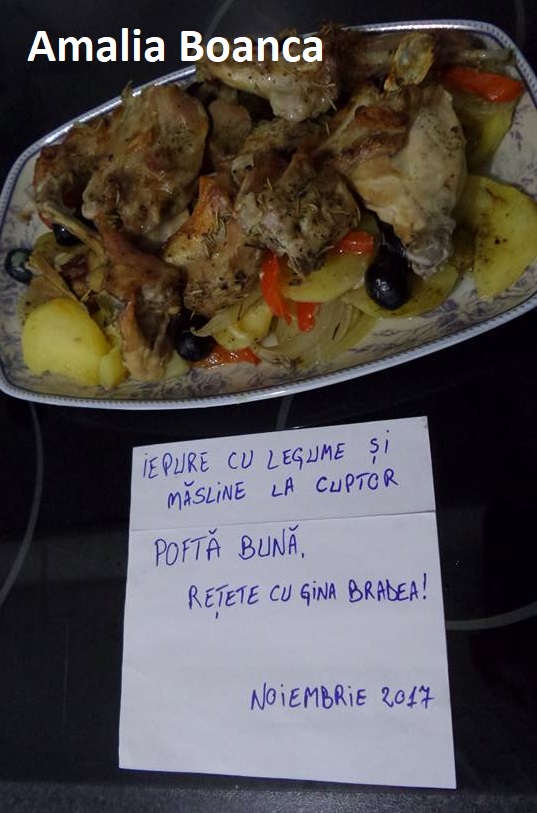 Amalia Boanca
IEPURE CU LEGUME ȘI
MĂSLINE LA CUPTOR
POFTĂ BUNĂ,
REȚETE CU GINA BRADEA!
NOIEMBRIE 2017